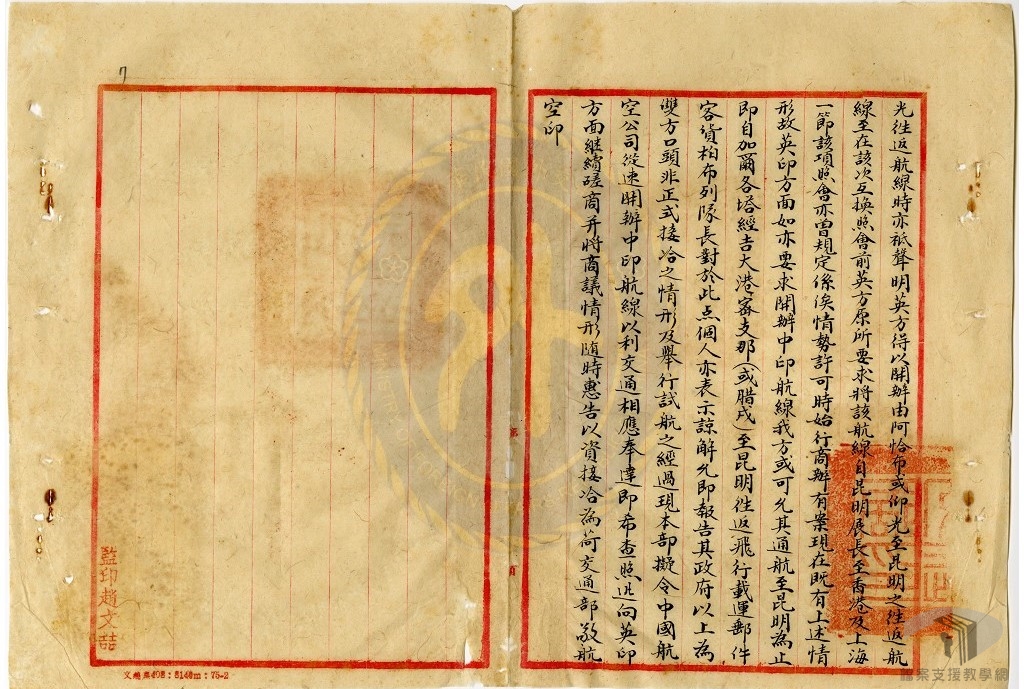 光往返航線時亦祇聲明英方得以開辦由阿恰布或仰光至昆明之往返航
線至在該次互換照會前英方原所要求將該航線自昆明展長至香港及上海
一節該項照會亦曾規定係俟情勢許可時始行商辦有案現在既有上述情
形故英印方面如亦要求開辦中印航線我方或可允其通航至昆明為止
即自加爾各塔經吉大港密支那(或腊戌)至昆明往返飛行載運郵件
客貨柏布列隊長對於此点個人亦表示諒解允即報告其政府以上為
雙方口頭非正式接洽之情形及舉行試航之經過現本部擬令中國航
空公司從速開辦中印航線以利交通相應奉達即希查照迅向英印
方面繼續磋商并將商議情形隨時惠告以資接洽為荷交通部敬航
空印
監印趙文喆
7
檔案支援教學網